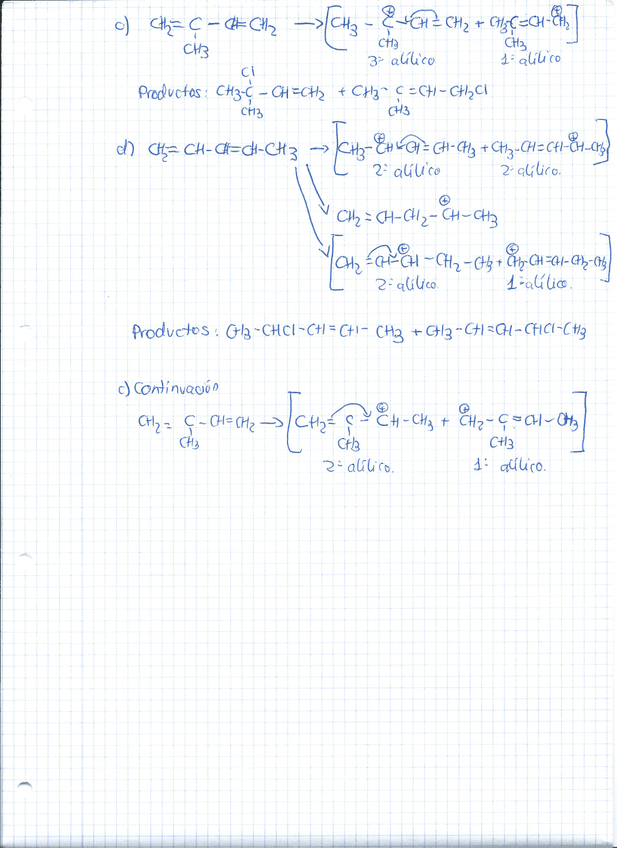 c) CH2=C-CH=CH2 → [CH3-C⊕-CH=CH2 + CH3C=CH-CH2⊕]
CH3 CH3 CH3
3º alílico 1º alílico
Cl
Productos: CH3-C-CH=CH2 + CH3-C=CH-CH2Cl
CH3 CH3
d) CH2=CH-CH=CH-CH3 → [CH3-CH⊕-CH=CH-CH3 + CH3-CH=CH-CH⊕-CH3]
2º alílico 2º alílico.
CH2=CH-CH2-CH⊕-CH3
[CH2=CH-CH⊕-CH2-CH3 + ⊕CH2-CH=CH-CH2-CH3]
2º alílico. 1º alílico.
Productos: CH3-CHCl-CH=CH-CH3 + CH3-CH=CH-CHCl-CH3
c) Continuación
CH2=C-CH=CH2 → [CH2=C-CH⊕-CH3 + ⊕CH2-C=CH-CH3]
CH3 CH3 CH3
2º alílico. 1º alílico.